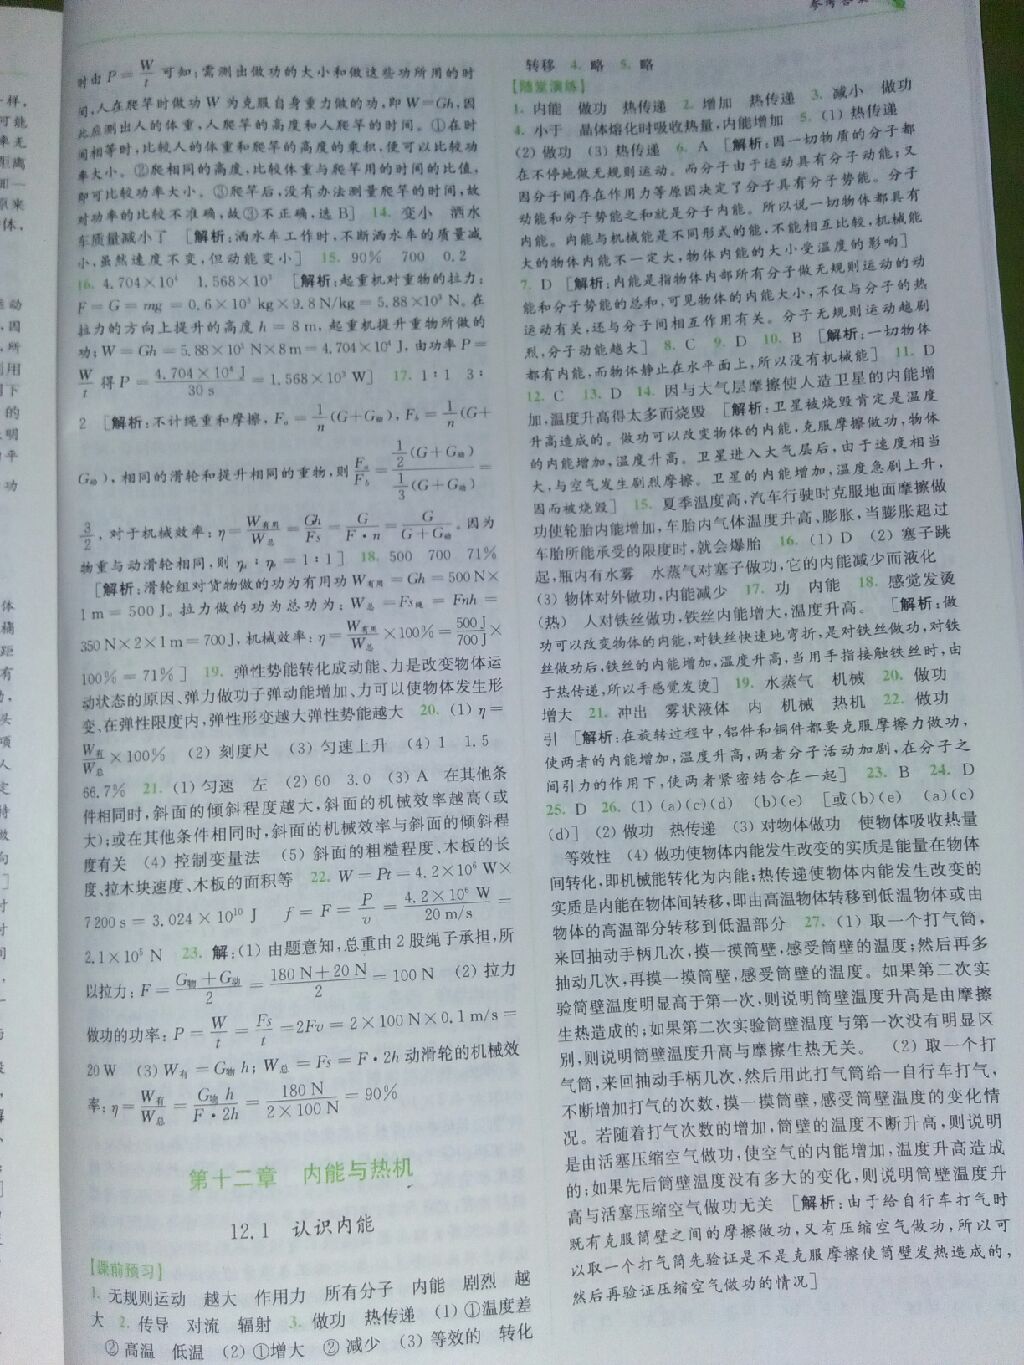 时由P=W/t可知:需测出做功的大小和做这些功所用的时
间,人在爬竿时做功W为克服自身重力做的功,即W=Gh,因
此应测出人的体重,人爬竿的高度和人爬竿的时间。①在时
间相等时,比较人的体重和爬竿的高度的乘积,便可以比较功
率大小。②爬相同的高度,比较体重与爬竿用的时间的比值,
即可比较功率大小。③爬竿后,没有办法测量爬竿的时间,故
对功率的比较不准确,故③不正确,选B] 14. 变小 洒水
车质量减小了 [解析:洒水车工作时,不断洒水车的质量减
小,虽然速度不变,但动能变小] 15. 90% 700 0.2
16. 4.704×10⁴ 1.568×10³ [解析:起重机对重物的拉力:
F=G=mg=0.6×10³ kg×9.8 N/kg=5.88×10³ N。在
拉力的方向上提升的高度h=8 m,起重机提升重物所做的
功:W=Gh=5.88×10³ N×8 m=4.704×10⁴ J,由功率P=
W/t得P=4.704×10⁴ J/30 s=1.568×10³ W] 17. 1:1 3:
2 [解析:不计绳重和摩擦,Fa=1/n(G+G动),Fb=1/n(G+
G动),相同的滑轮和提升相同的重物,则Fa/Fb=1/2(G+G动)/1/3(G+G动)=
3/2,对于机械效率:η=W有用/W总=Gh/Fs=G/F·n=G/G+G动。因为
物重与动滑轮相同,则ηa:ηb=1:1] 18. 500 700 71%
[解析:滑轮组对货物做的功为有用功W有用=Gh=500 N×
1 m=500 J。拉力做的功为总功为:W总=Fs绳=Fnh=
350 N×2×1 m=700 J,机械效率:η=W有用/W总×100%=500 J/700 J×
100%=71%] 19. 弹性势能转化成动能、力是改变物体运
动状态的原因、弹力做功子弹动能增加、力可以使物体发生形
变、在弹性限度内,弹性形变越大弹性势能越大 20. (1) η=
W有/W总×100% (2) 刻度尺 (3) 匀速上升 (4) 1 1.5
66.7% 21. (1) 匀速 左 (2) 60 3.0 (3) A 在其他条
件相同时,斜面的倾斜程度越大,斜面的机械效率越高(或
大);或在其他条件相同时,斜面的机械效率与斜面的倾斜程
度有关 (4) 控制变量法 (5) 斜面的粗糙程度、木板的长
度、拉木块速度、木板的面积等 22. W=Pt=4.2×10⁶ W×
7200 s=3.024×10¹⁰ J f=F=P/v=4.2×10⁶ W/20 m/s=
2.1×10⁵ N 23. 解:(1) 由题意知,总重由2股绳子承担,所
以拉力:F=G物+G动/2=180 N+20 N/2=100 N (2) 拉力
做功的功率:P=W/t=Fs/t=2Fv=2×100 N×0.1 m/s=
20 W (3) W有=G物h;W总=Fs=F·2h动滑轮的机械效
率:η=W有/W总=G物h/F·2h=180 N/2×100 N=90%
第十二章 内能与热机
12.1 认识内能
【课前预习】
1. 无规则运动 越大 作用力 所有分子 内能 剧烈 越
大 2. 传导 对流 辐射 3. 做功 热传递 (1) ①温度差
②高温 低温 (2) ①增大 ②减少 (3) 等效的 转化
转移 4. 略 5. 略
【随堂演练】
1. 内能 做功 热传递 2. 增加 热传递 3. 减小 做功
4. 小于 晶体熔化时吸收热量,内能增加 5. (1) 热传递
(2) 做功 (3) 热传递 6. A [解析:因一切物质的分子都
在不停地做无规则运动。而分子由于运动具有分子动能;又
因分子间存在作用力等原因决定了分子具有分子势能。分子
动能和分子势能之和就是分子内能。所以说一切物体都具有
内能。内能与机械能是不同形式的能,不能相互比较,机械能
大的物体内能不一定大,物体内能的大小受温度的影响]
7. D [解析:内能是指物体内部所有分子做无规则运动的动
能和分子势能的总和,可见物体的内能大小,不仅与分子的热
运动有关,还与分子间相互作用有关。分子无规则运动越剧
烈,分子动能越大] 8. C 9. D 10. B [解析:一切物体
都有内能,而物体静止在水平面上,所以没有机械能] 11. D
12. C 13. D 14. 因与大气层摩擦使人造卫星的内能增
加,温度升高得太多而烧毁 [解析:卫星被烧毁肯定是温度
升高造成的。做功可以改变物体的内能,克服摩擦做功,物体
的内能增加,温度升高。卫星进入大气层后,由于速度相当
大,与空气发生剧烈摩擦。卫星的内能增加,温度急剧上升,
因而被烧毁] 15. 夏季温度高,汽车行驶时克服地面摩擦做
功使轮胎内能增加,车胎内气体温度升高、膨胀,当膨胀超过
车胎所能承受的限度时,就会爆胎 16. (1) D (2) 塞子跳
起,瓶内有水雾 水蒸气对塞子做功,它的内能减少而液化
(3) 物体对外做功,内能减少 17. 功 内能 18. 感觉发烫
(热) 人对铁丝做功,铁丝内能增大,温度升高。 [解析:做
功可以改变物体的内能,对铁丝快速地弯折,是对铁丝做功,对铁
丝做功后,铁丝的内能增加,温度升高,当用手指接触铁丝时,由
于热传递,所以手感觉发烫] 19. 水蒸气 机械 20. 做功
增大 21. 冲出 雾状液体 内 机械 热机 22. 做功
引 [解析:在旋转过程中,铝件和铜件都要克服摩擦力做功,
使两者的内能增加,温度升高,两者分子活动加剧,在分子之
间引力的作用下,使两者紧密结合在一起] 23. B 24. D
25. D 26. (1) (a)(c)(d) (b)(e) [或(b)(e) (a)(c)
(d)] (2) 做功 热传递 (3) 对物体做功 使物体吸收热量
等效性 (4) 做功使物体内能发生改变的实质是能量在物体
间转化,即机械能转化为内能;热传递使物体内能发生改变的
实质是内能在物体间转移,即由高温物体转移到低温物体或由
物体的高温部分转移到低温部分 27. (1) 取一个打气筒,
来回抽动手柄几次,摸一摸筒壁,感受筒壁的温度;然后再多
抽动几次,再摸一摸筒壁,感受筒壁的温度。如果第二次实
验筒壁温度明显高于第一次,则说明筒壁温度升高是由摩擦
生热造成的;如果第二次实验筒壁温度与第一次没有明显区
别,则说明筒壁温度升高与摩擦生热无关。 (2) 取一个打
气筒,来回抽动手柄几次,然后用此打气筒给一自行车打气,
不断增加打气的次数,摸一摸筒壁,感受筒壁温度的变化情
况。若随着打气次数的增加,筒壁的温度不断升高,则说明
是由活塞压缩空气做功,使空气的内能增加,温度升高造成
的;如果先后筒壁温度没有多大的变化,则说明筒壁温度升
高与活塞压缩空气做功无关 [解析:由于给自行车打气时
既有克服筒壁之间的摩擦做功,又有压缩空气做功,所以可
以取一个打气筒先验证是不是克服摩擦使筒壁发热造成的,
然后再验证压缩空气做功的情况]